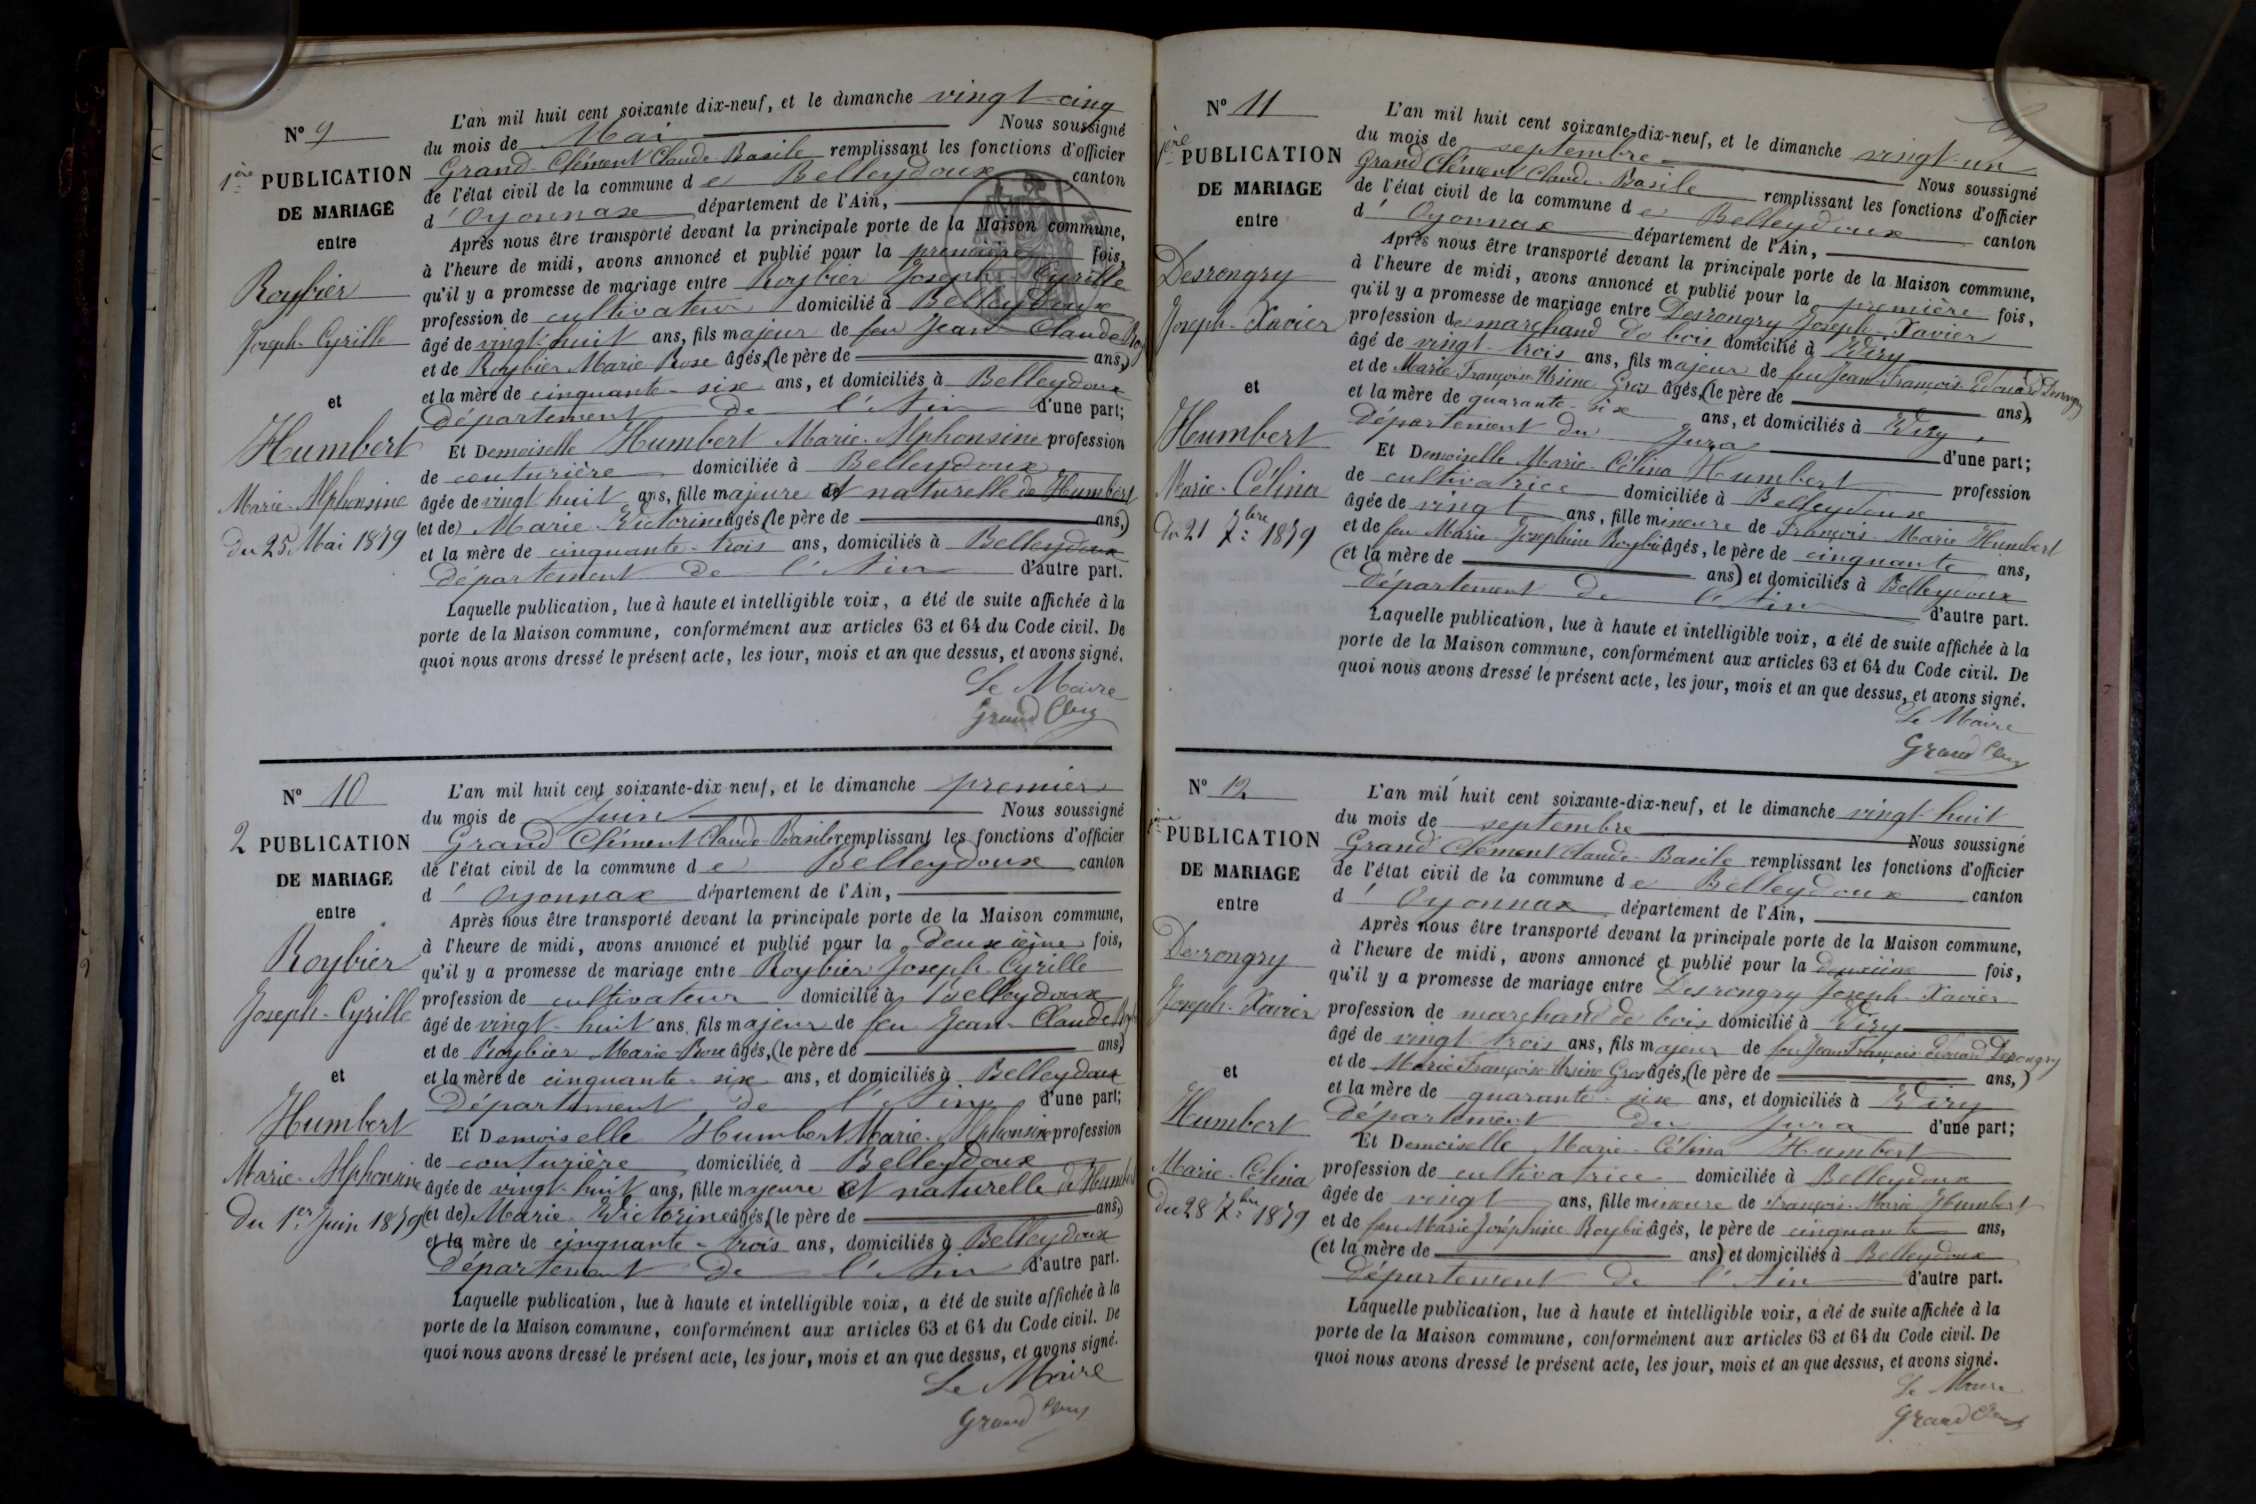 N° 9
1ère PUBLICATION
DE MARIAGE
entre
Roybier
Joseph-Cyrille
et
Humbert
Marie-Alphonsine
du 25 Mai 1879
L'an mil huit cent soixante dix-neuf, et le dimanche vingt-cinq
du mois de Mai Nous soussigné
Grand-Clément Claude-Basile remplissant les fonctions d'officier
de l'état civil de la commune de Belleydoux canton
d'Oyonnax département de l'Ain,
Après nous être transporté devant la principale porte de la Maison commune,
à l'heure de midi, avons annoncé et publié pour la première fois,
qu'il y a promesse de mariage entre Roybier Joseph-Cyrille
profession de cultivateur domicilié à Belleydoux
âgé de vingt-huit ans, fils majeur de feu Jean-Claude Roy
et de Roybier Marie-Rose âgés, (le père de ans,)
et la mère de cinquante-six ans, et domiciliés à Belleydoux
département de l'Ain d'une part;
Et Demoiselle Humbert Marie-Alphonsine profession
de couturière domiciliée à Belleydoux
âgée de vingt-huit ans, fille majeure et naturelle de Humbert
(et de) Marie-Victorine âgés, (le père de ans,)
et la mère de cinquante-trois ans, domiciliés à Belleydoux
département de l'Ain d'autre part.
Laquelle publication, lue à haute et intelligible voix, a été de suite affichée à la
porte de la Maison commune, conformément aux articles 63 et 64 du Code civil. De
quoi nous avons dressé le présent acte, les jour, mois et an que dessus, et avons signé.
Le Maire
Grand Clém
N° 10
2 PUBLICATION
DE MARIAGE
entre
Roybier
Joseph-Cyrille
et
Humbert
Marie-Alphonsine
Du 1er Juin 1879
L'an mil huit cent soixante-dix neuf, et le dimanche premier
du mois de Juin Nous soussigné
Grand Clément Claude-Basile remplissant les fonctions d'officier
de l'état civil de la commune de Belleydoux canton
d'Oyonnax département de l'Ain,
Après nous être transporté devant la principale porte de la Maison commune,
à l'heure de midi, avons annoncé et publié pour la deuxième fois,
qu'il y a promesse de mariage entre Roybier Joseph-Cyrille
profession de cultivateur domicilié à Belleydoux
âgé de vingt-huit ans, fils majeur de feu Jean-Claude
et de Roybier Marie-Rose âgés, (le père de ans)
et la mère de cinquante-six ans, et domiciliés à Belleydoux
Département de l'Ain d'une part;
Et Demoiselle Humbert Marie-Alphonsine profession
de couturière domiciliée à Belleydoux
âgée de vingt-huit ans, fille majeure et naturelle de Humbert
(et de) Marie-Victorine âgés, (le père de ans,)
et la mère de cinquante-trois ans, domiciliés à Belleydoux
département de l'Ain d'autre part.
Laquelle publication, lue à haute et intelligible voix, a été de suite affichée à la
porte de la Maison commune, conformément aux articles 63 et 64 du Code civil. De
quoi nous avons dressé le présent acte, les jour, mois et an que dessus, et avons signé.
Le Maire
Grand Clém
N° 11
1ère PUBLICATION
DE MARIAGE
entre
Desrongry
Joseph-Xavier
et
Humbert
Marie-Célina
Du 21 7bre 1879
L'an mil huit cent soixante-dix-neuf, et le dimanche vingt-un
du mois de septembre Nous soussigné
Grand Clément Claude-Basile remplissant les fonctions d'officier
de l'état civil de la commune de Belleydoux canton
d'Oyonnax département de l'Ain,
Après nous être transporté devant la principale porte de la Maison commune,
à l'heure de midi, avons annoncé et publié pour la première fois,
qu'il y a promesse de mariage entre Desrongry Joseph-Xavier
profession de marchand de bois domicilié à Viry
âgé de vingt-trois ans, fils majeur de feu Jean-François-Edouard Desrongry
et de Marie Françoise Ursine Gros âgés, (le père de ans),
et la mère de quarante-six ans, et domiciliés à Viry,
département du Jura d'une part;
Et Demoiselle Marie-Célina Humbert profession
de cultivatrice domiciliée à Belleydoux
âgée de vingt ans, fille mineure de François-Marie Humbert
et de feu Marie-Joséphine Roybier âgés, le père de cinquante ans,
(et la mère de ans) et domiciliés à Belleydoux
département de l'Ain d'autre part.
Laquelle publication, lue à haute et intelligible voix, a été de suite affichée à la
porte de la Maison commune, conformément aux articles 63 et 64 du Code civil. De
quoi nous avons dressé le présent acte, les jour, mois et an que dessus, et avons signé.
Le Maire
Grand Clém
N° 12
PUBLICATION
DE MARIAGE
entre
Desrongry
Joseph-Xavier
et
Humbert
Marie-Célina
Du 28 7bre 1879
L'an mil huit cent soixante-dix-neuf, et le dimanche vingt-huit
du mois de septembre Nous soussigné
Grand Clément Claude-Basile remplissant les fonctions d'officier
de l'état civil de la commune de Belleydoux canton
d'Oyonnax département de l'Ain,
Après nous être transporté devant la principale porte de la Maison commune,
à l'heure de midi, avons annoncé et publié pour la deuxième fois,
qu'il y a promesse de mariage entre Desrongry Joseph-Xavier
profession de marchand de bois domicilié à Viry
âgé de vingt trois ans, fils majeur de feu Jean François Edouard Desrongry
et de Marie Françoise Ursine Gros âgés, (le père de ans,)
et la mère de quarante-six ans, et domiciliés à Viry
département du Jura d'une part;
Et Demoiselle Marie-Célina Humbert
profession de cultivatrice domiciliée à Belleydoux
âgée de vingt ans, fille mineure de François-Marie Humbert
et de feu Marie Joséphine Roybier âgés, le père de cinquante ans,
(et la mère de ans) et domiciliés à Belleydoux
département de l'Ain d'autre part.
Laquelle publication, lue à haute et intelligible voix, a été de suite affichée à la
porte de la Maison commune, conformément aux articles 63 et 64 du Code civil. De
quoi nous avons dressé le présent acte, les jour, mois et an que dessus, et avons signé.
Le Maire
Grand Clém